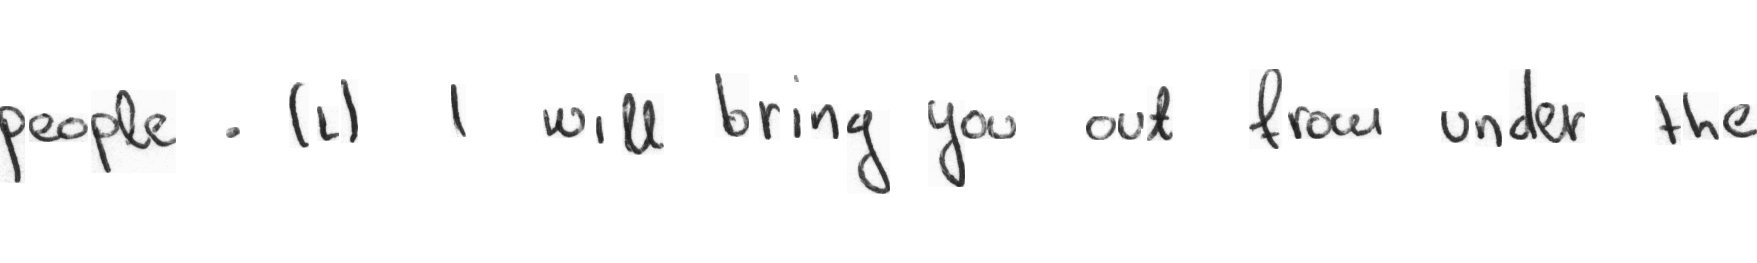 people . (L) I will bring you out from under the